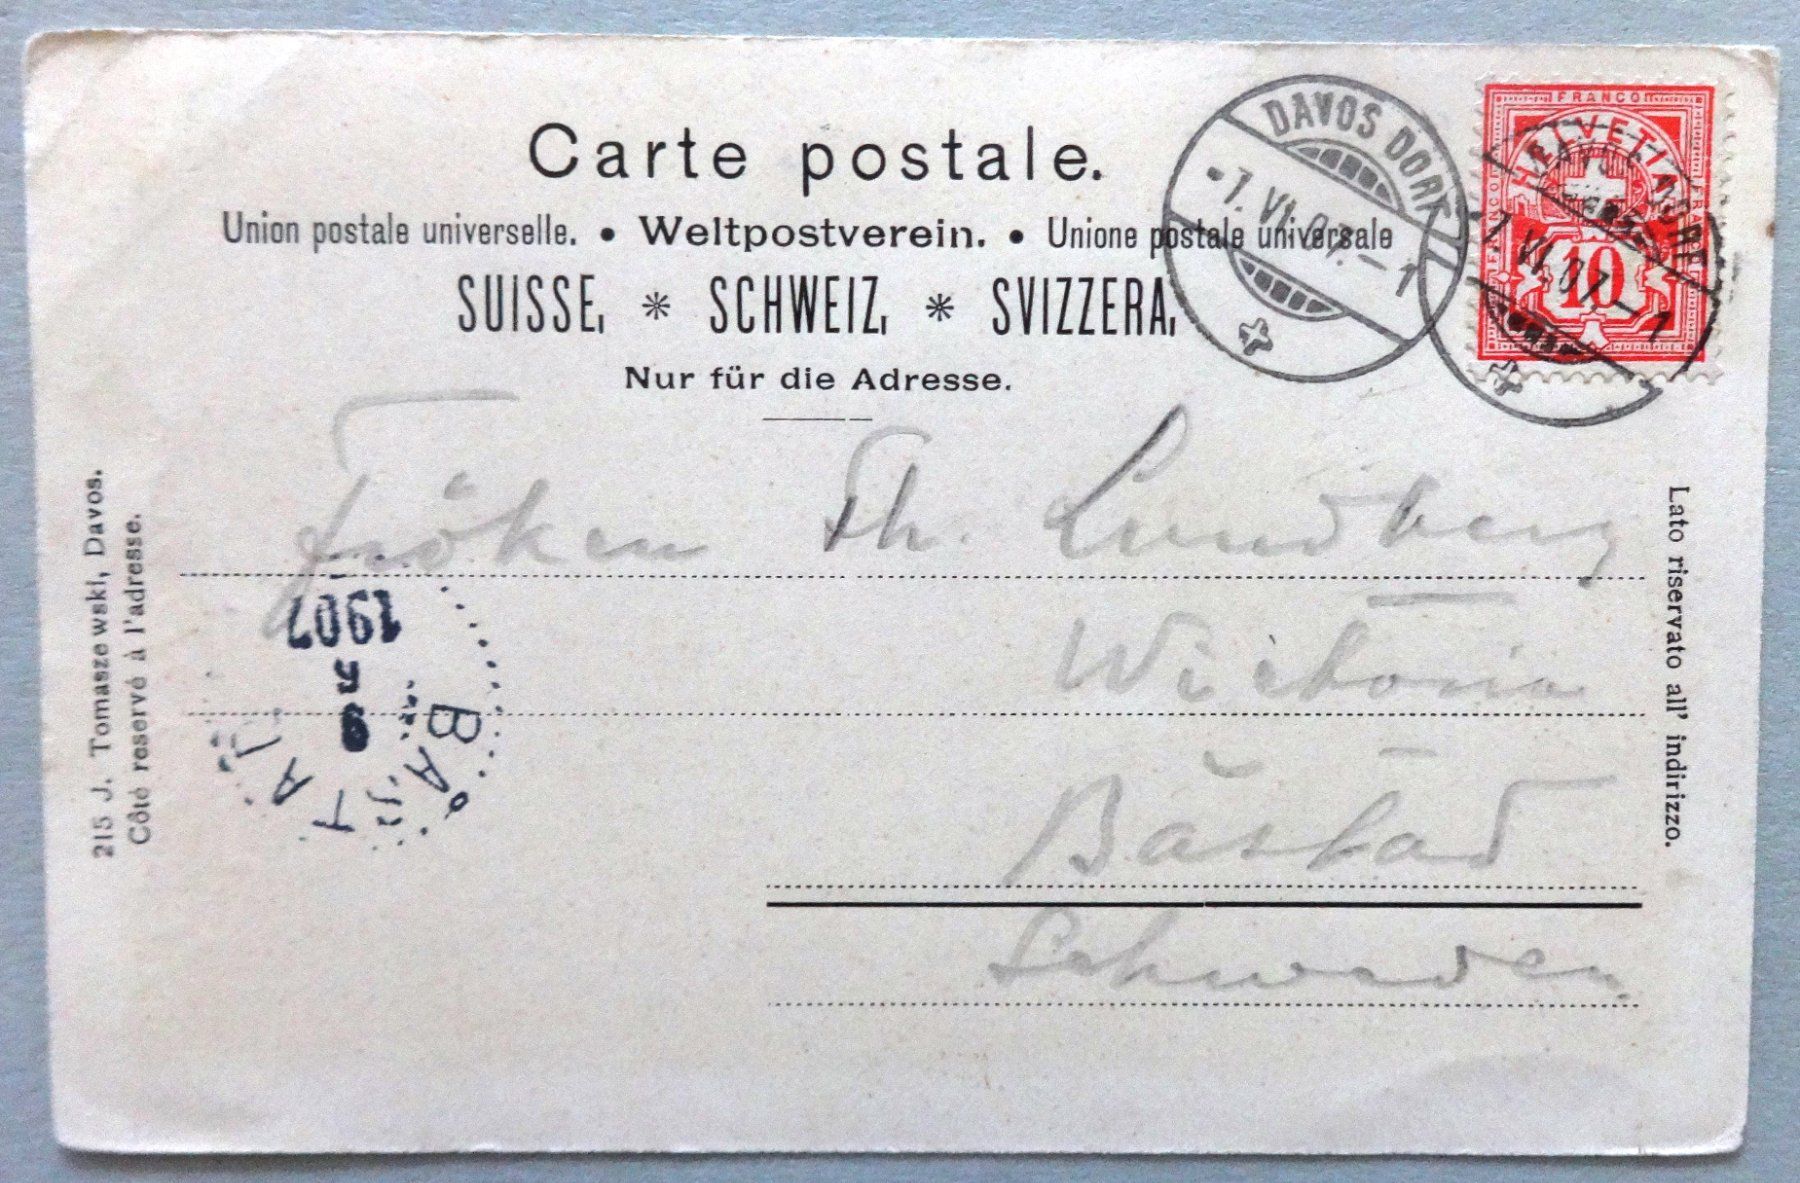 Carte postale.
Union postale universelle. • Weltpostverein. • Unione postale universale
SUISSE, * SCHWEIZ, * SVIZZERA,
Nur für die Adresse.
DAVOS DORF
7. VI. 07. – 1
FRANCO
HELVETIA
FRANCO
FRANCO
10
DAVOS DORF
7. VI. 07. – 1
Fröken Th. Lundberg
Wictoria
Båstad
Schweden
BÅSTAD
9
1907
215 J. Tomaszewski, Davos.
Côté reservé à l'adresse.
Lato riservato all' indirizzo.